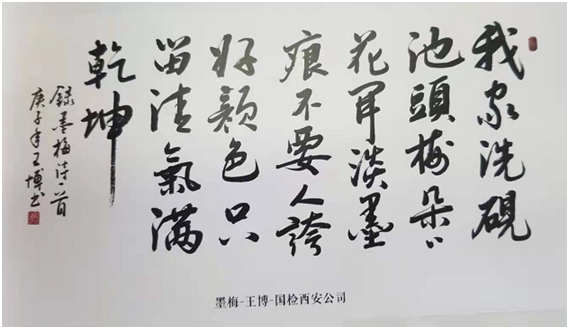 我家洗硯
池頭梅朵〻
花開淡墨
痕不要人誇
好顏色只
留清氣滿
乾坤
錄墨梅诗一首
庚子年王博书
墨梅-王博-国检西安公司